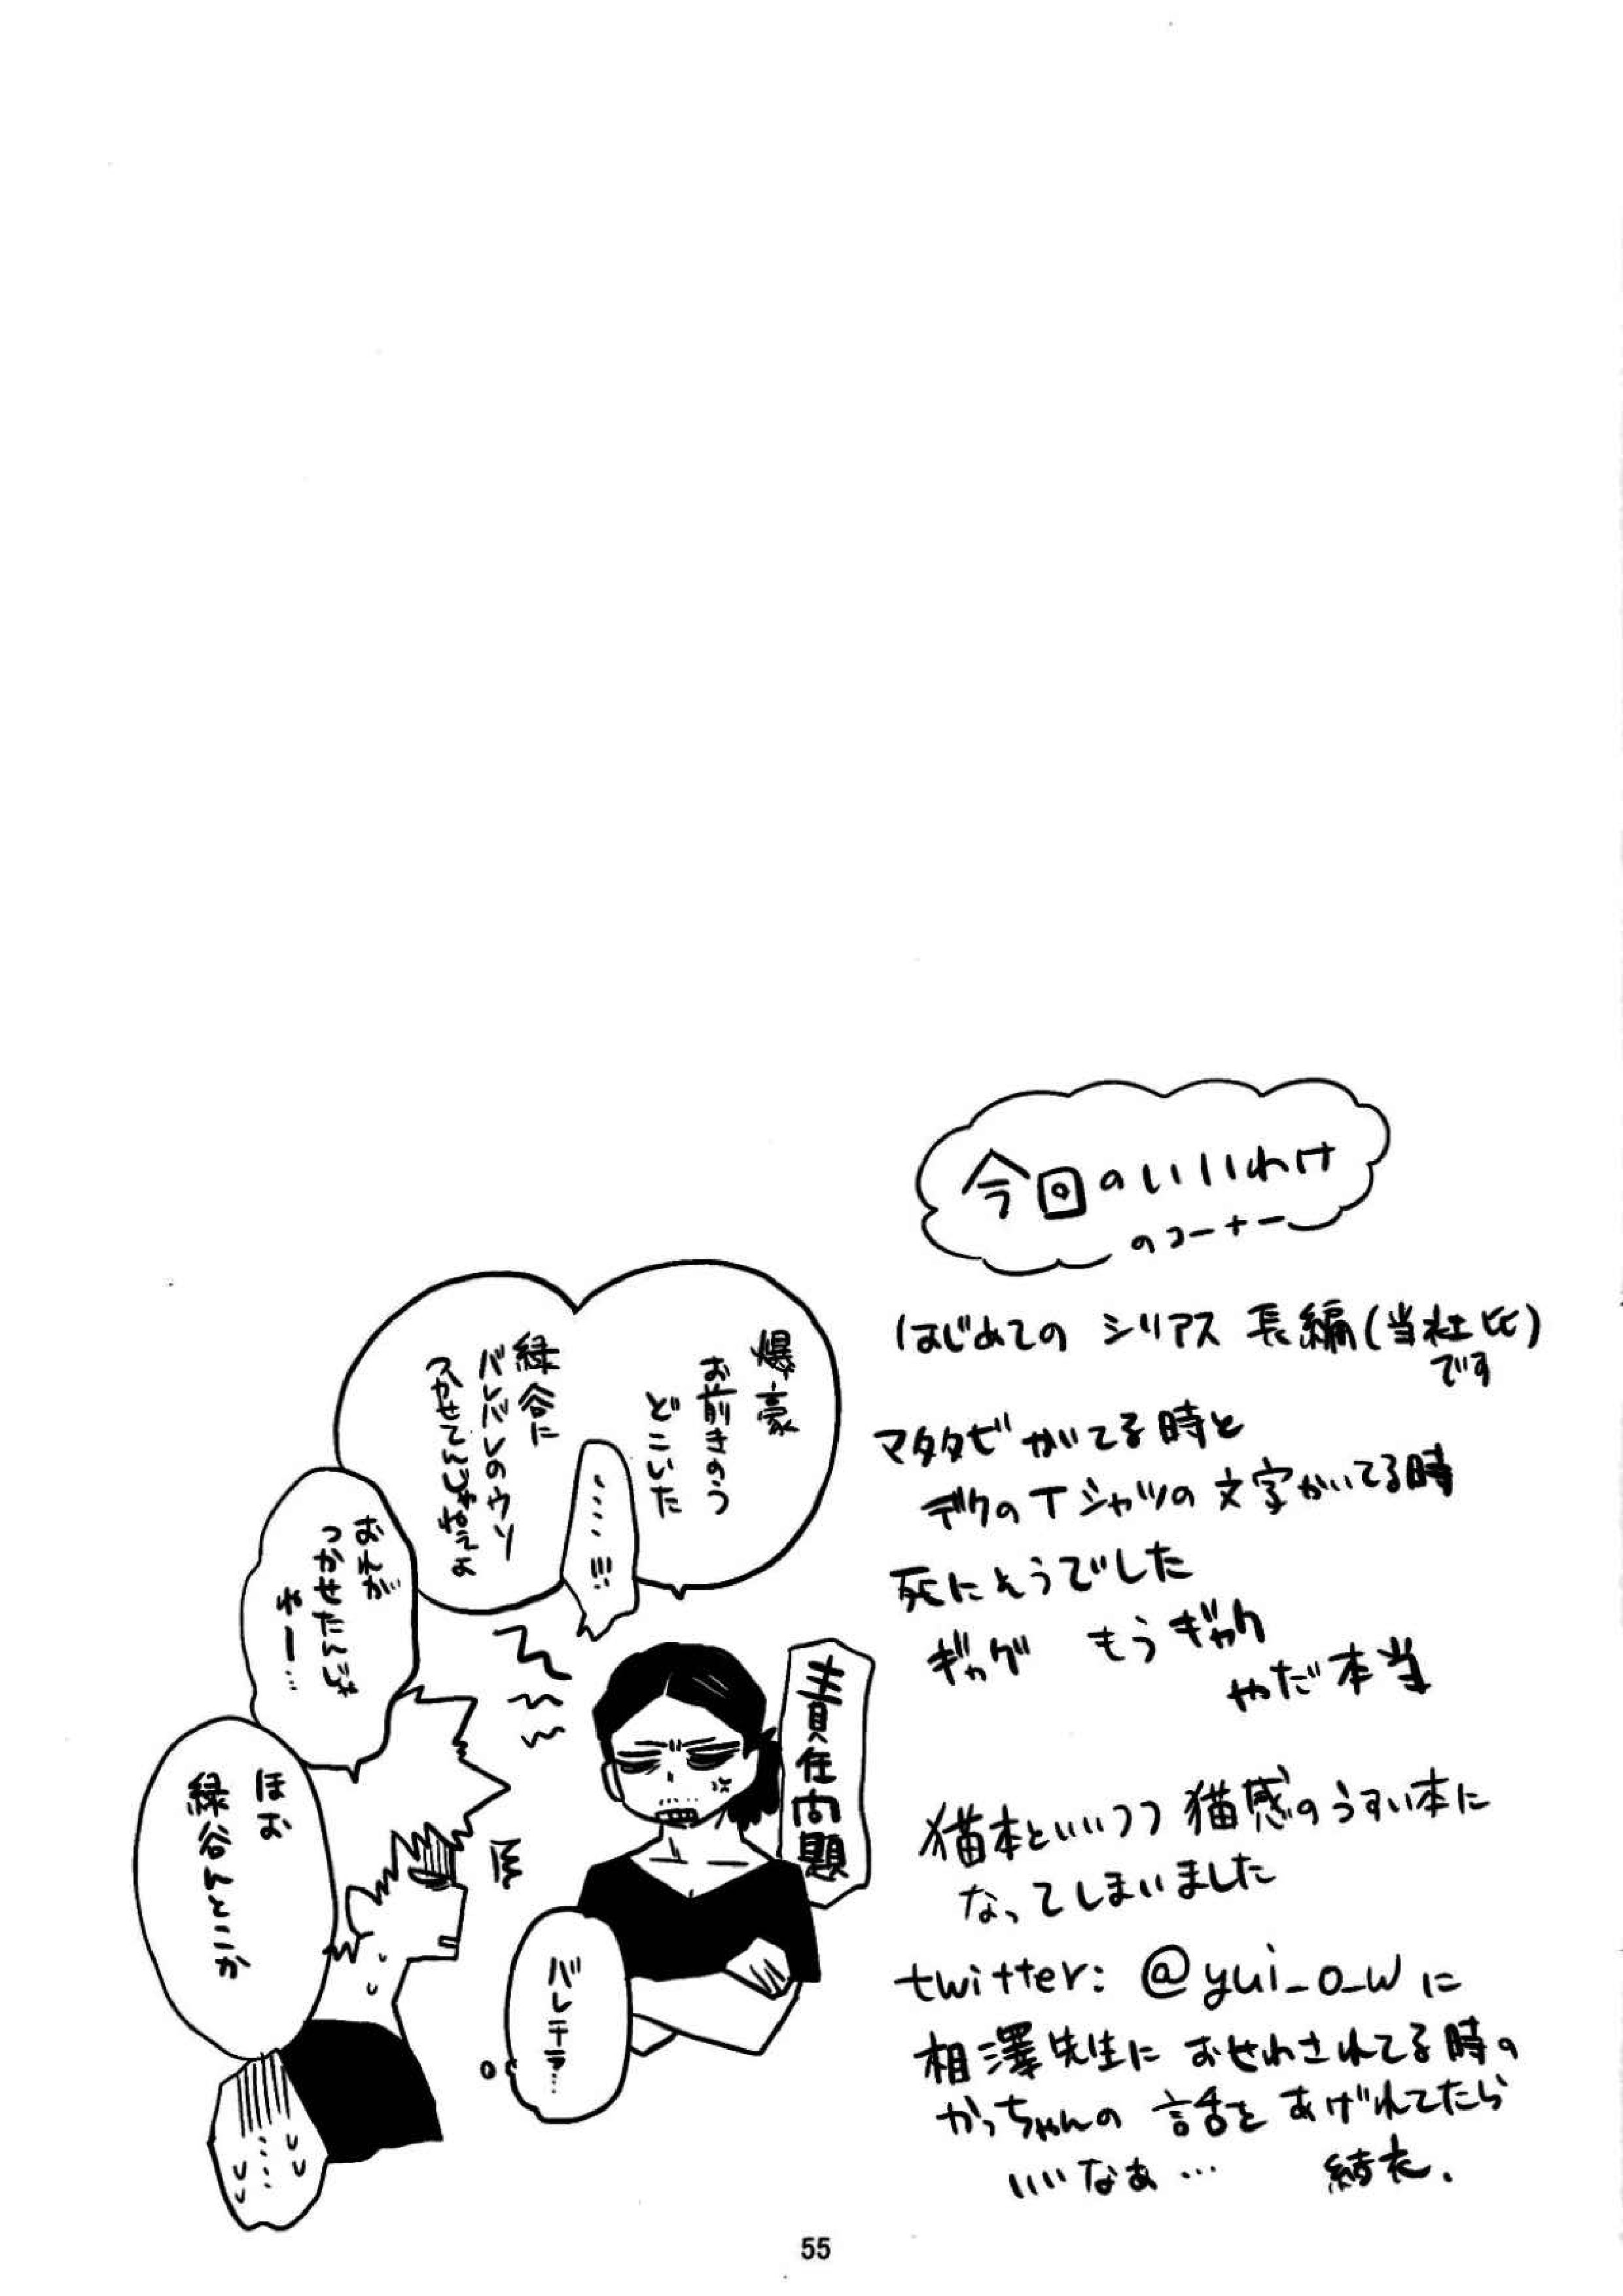 今回のいいわけ
のコーナー
はじめての シリアス 長編(当社比)
です
マタタビかいてる時と
デクのTシャツの文字かいてる時
死にそうでした
ギャグ もうギャグ
やだ本当
猫本といいつつ猫感のうすい本に
なってしまいました
twitter: @yui_o_wに
相澤先生におせわされてる時の
かっちゃんの 話をあげれてたら
いいなぁ… 結衣.
爆豪
お前きのう
どこいた
緑谷に
バレバレのウソ
つかせてんじゃねえよ
……!!!
おれが
つかせたんじゃ
ねー…
ほお
緑谷んとこか
……
責任問題
バレテラ…
55